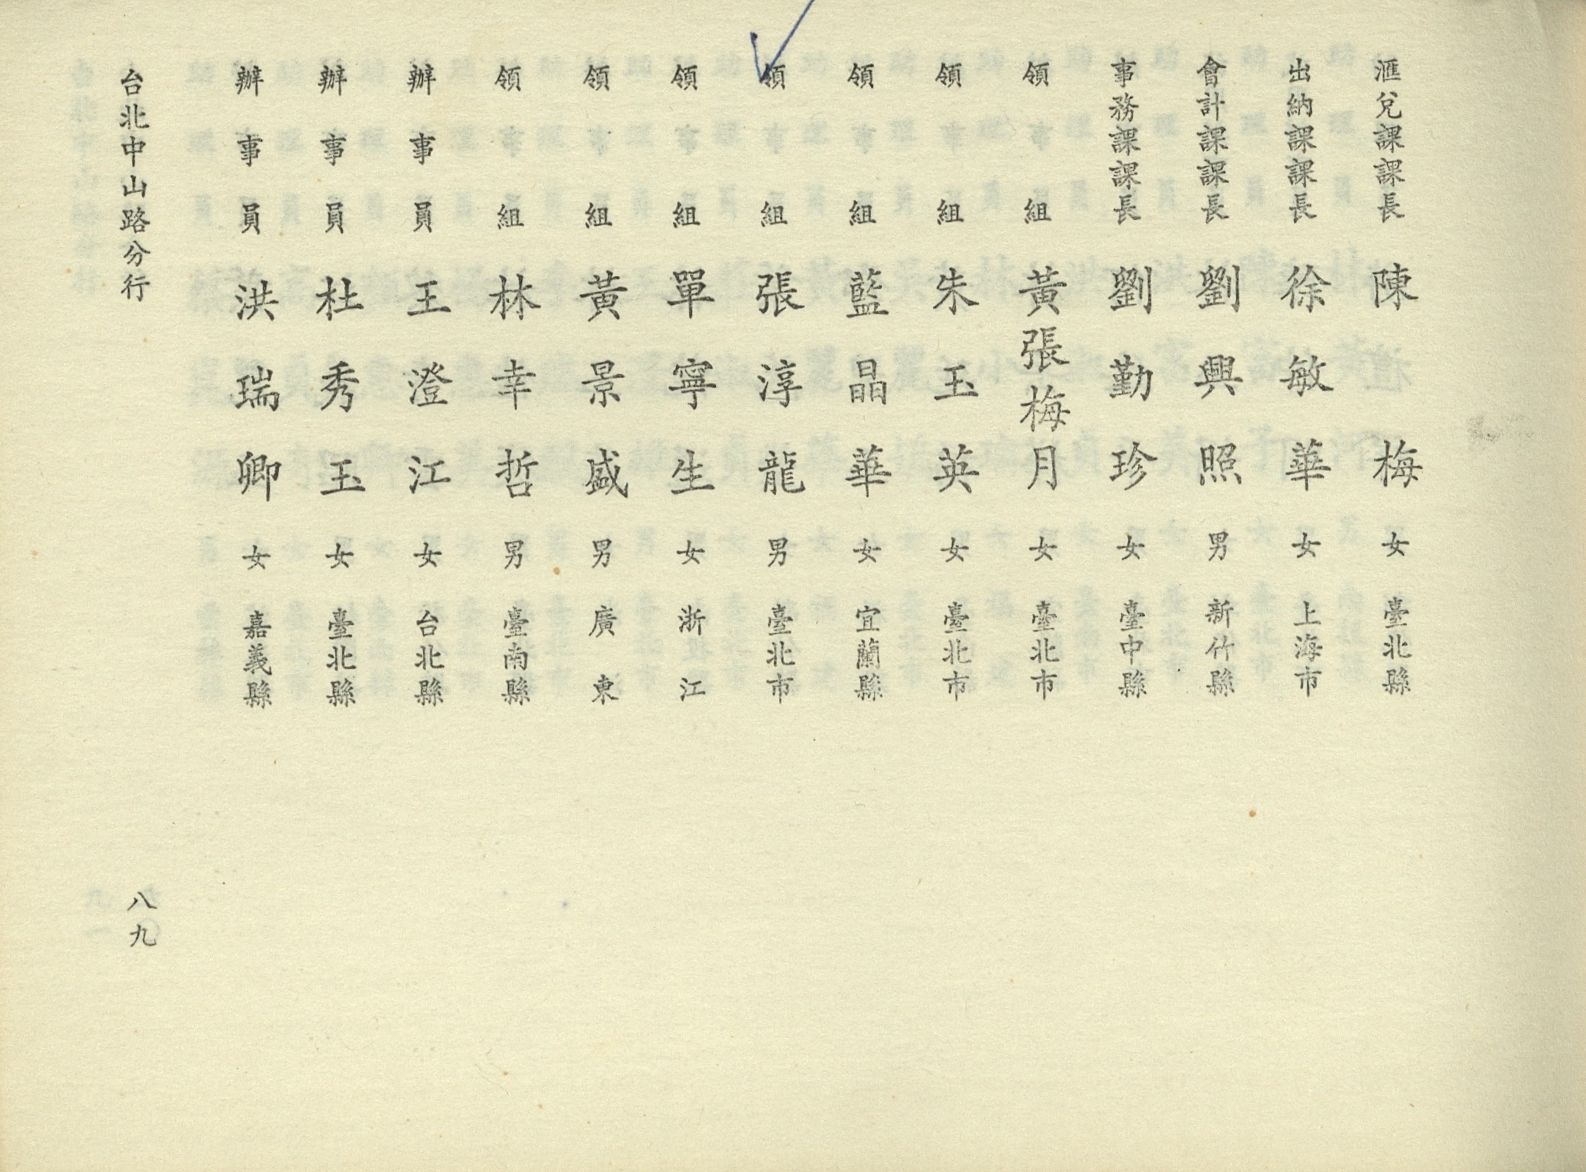 滙兌課課長 陳梅 女 臺北縣
出納課課長 徐敏華 女 上海市
會計課課長 劉興照 男 新竹縣
事務課課長 劉勤珍 女 臺中縣
領組 黃張梅月 女 臺北市
領組 朱玉英 女 臺北市
領組 藍晶華 女 宜蘭縣
領組 張淳龍 男 臺北市
領組 單寧生 女 浙江
領組 黃景盛 男 廣東
領組 林幸哲 男 臺南縣
辦事員 王澄江 女 台北縣
辦事員 杜秀玉 女 臺北縣
辦事員 洪瑞卿 女 嘉義縣
台北中山路分行
八九